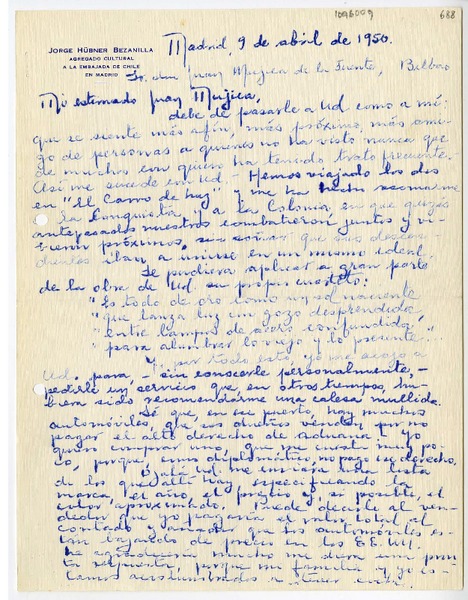 1096009
688
JORGE HÜBNER BEZANILLA
AGREGADO CULTURAL
A LA EMBAJADA DE CHILE
EN MADRID
Madrid, 9 de abril de 1950.
Sr. don Juan Mujica de la Fuente, Bilbao
Mi estimado Juan Mujica,
debe de pasarle a Ud. como a mí:
que se siente más afín, más próximo, más ami-
go de personas a quienes no ha visto nunca que
de muchos con quien ha tenido trato frecuente.
Así me sucede con Ud. - Hemos viajado los dos
en "El Carro de luz" y me ha hecho
la Conquista y a la Colonia, en que quizás
antepasados nuestros combatieron juntos y vi-
vieron próximos, sin soñar que sus descen-
dientes iban a unirse en un mismo ideal.
Se pudiera aplicar a gran parte
de la obra de Ud. su propio cuarteto:
"Es todo de oro como un sol naciente
"que lanza luz en gozo desprendida,
"entre campos de acero confundida,
"para alumbrar lo viejo y lo presente..."
Y, por todo esto, yo me acojo a
Ud. para, - sin conocerle personalmente, -
pedirle un servicio que, en otros tiempos, hu-
biera sido recomendarme una calesa mullida.
Sé que, en ese puerto, hay muchos
automóviles, que sus dueños venden por no
pagar el alto derecho de aduana. Yo
quiero comprar uno, que me cueste muy po-
co, porque, como diplomático, no pago ese derecho.
Ojalá Ud. me enviara una lista
de los que allí hay, especificando la
marca, el año, el precio y, si posible, el
color aproximado. Puede decirle al ven-
dedor que yo pagaría el valor total al
contado y añadir que los automóviles es-
tán bajando de precio en los EE. UU.
Le agradecería mucho me diera una pron-
ta respuesta, porque mi familia y yo es-
tamos acostumbrados a tener coche.